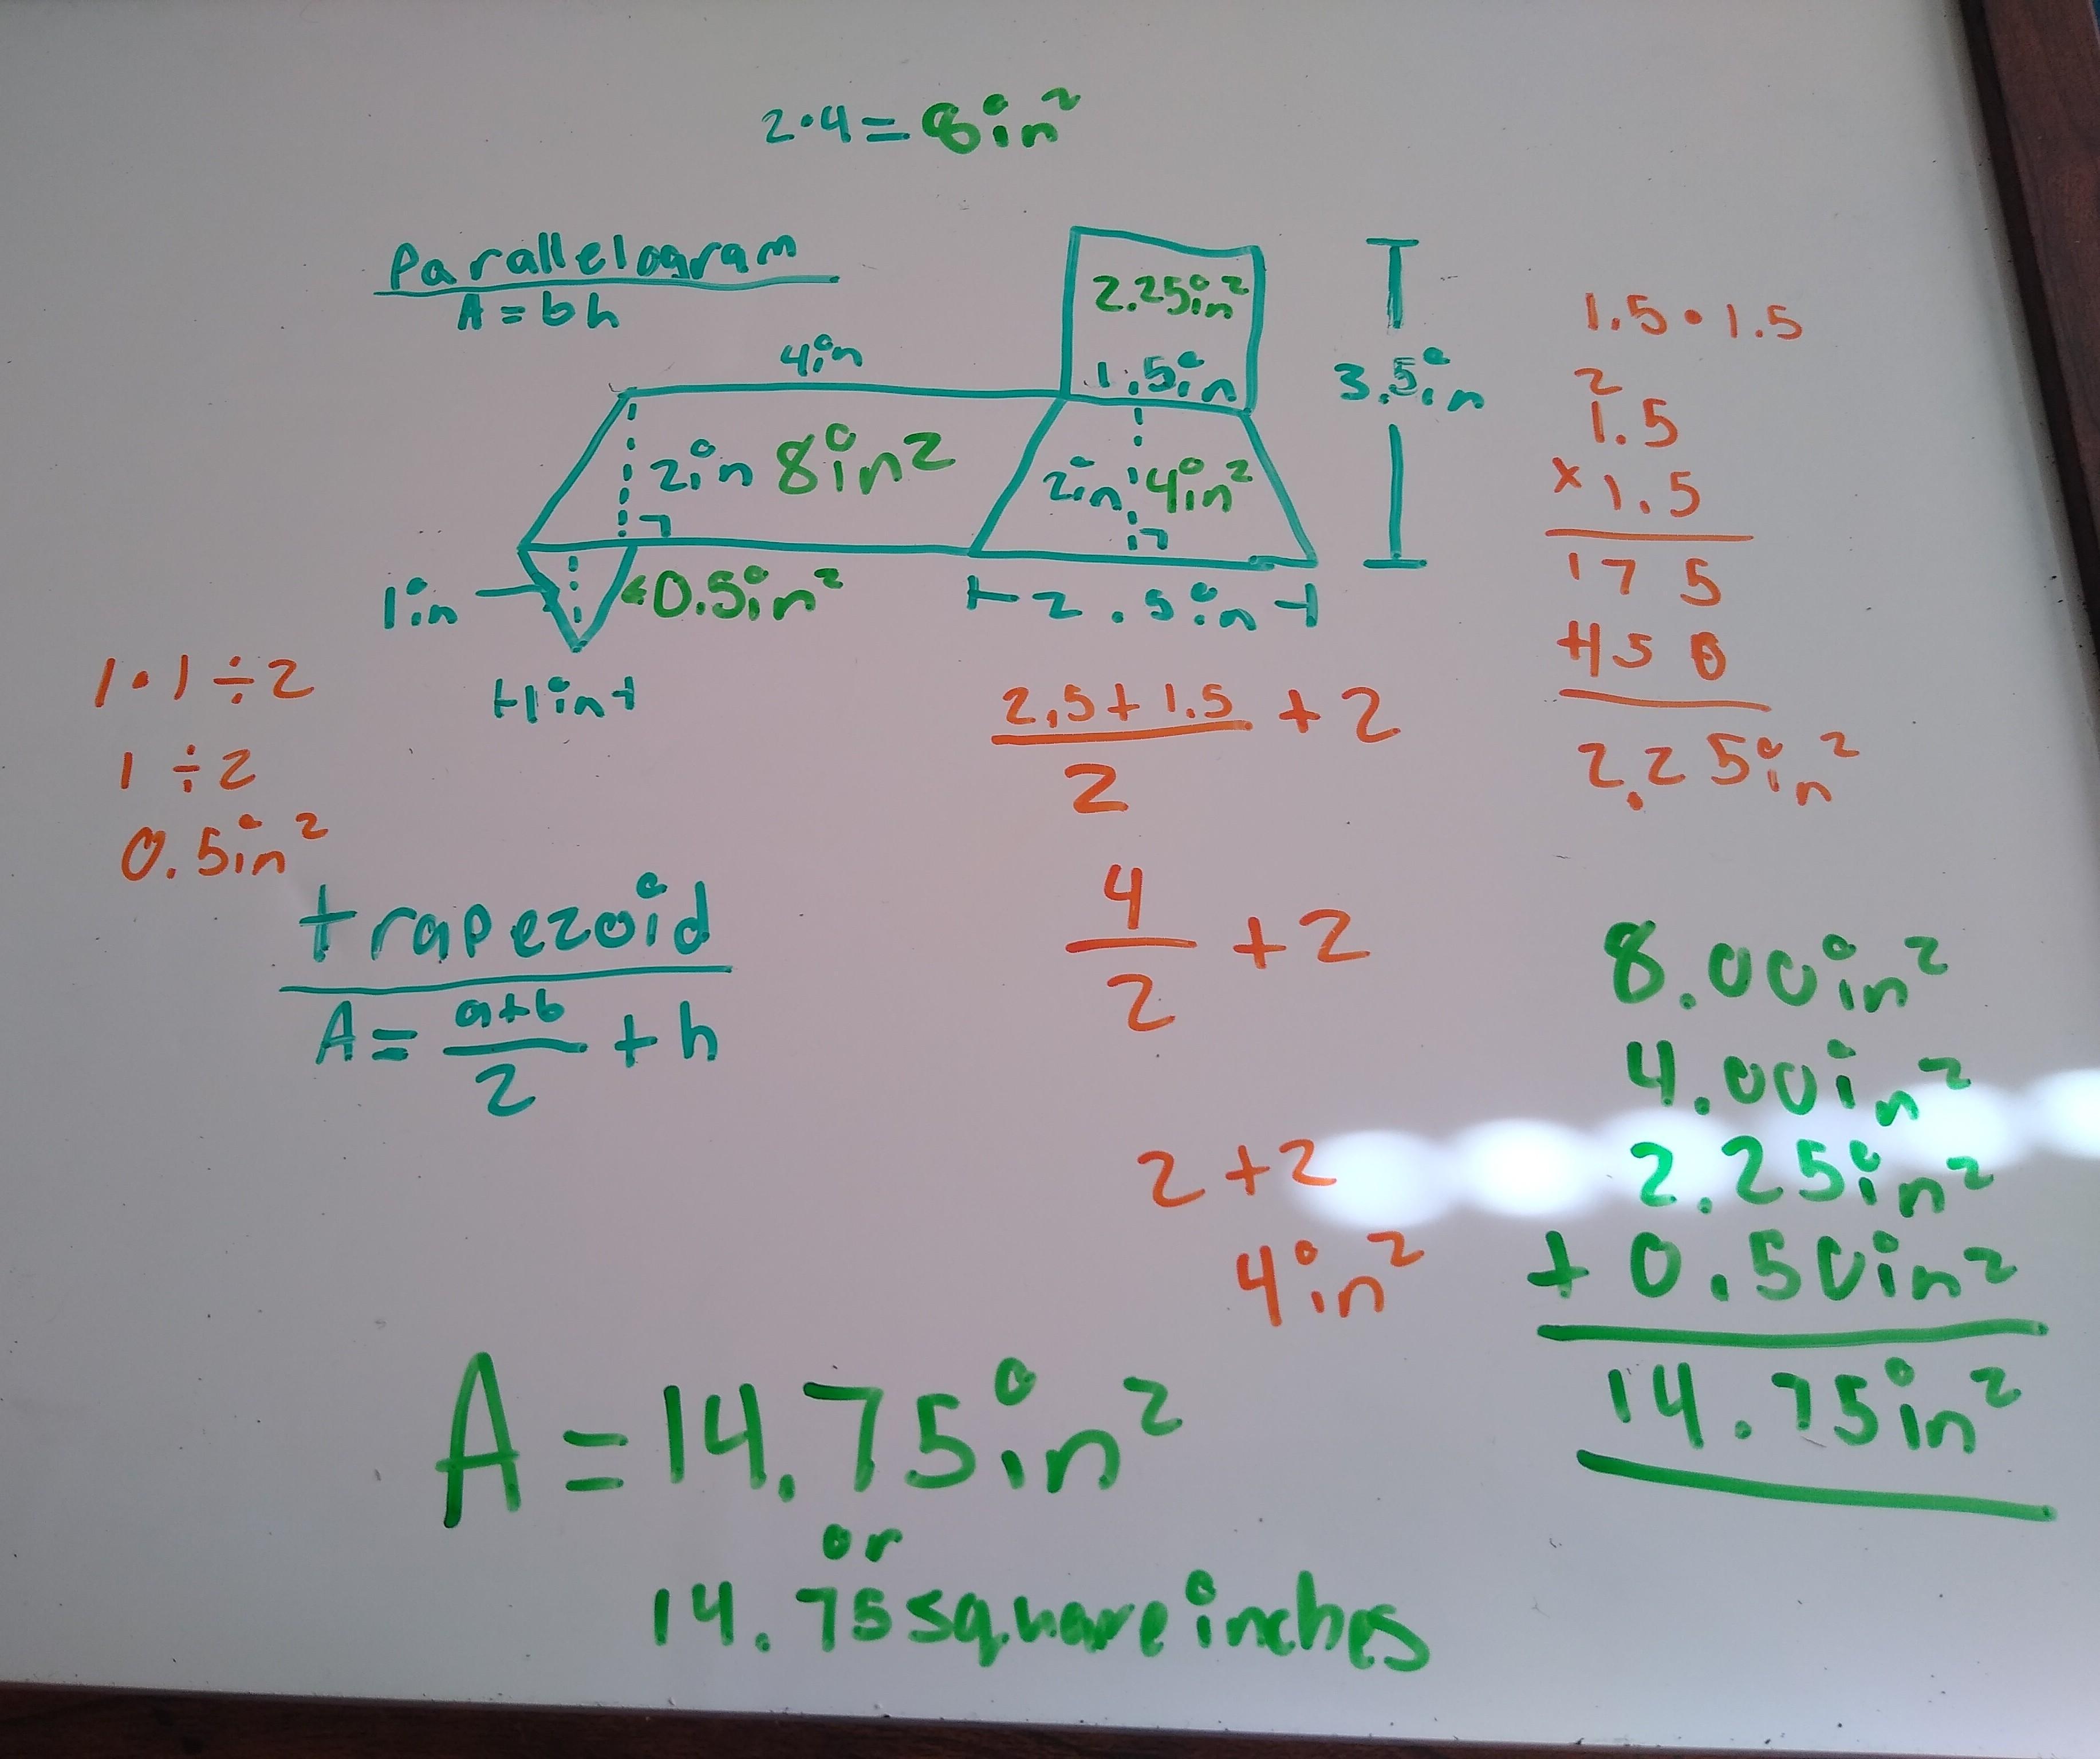 2·4=8in²
Parallelogram
A=bh
4in
2.25in²
1.5in
3.5in
2in 8in²
2in 4in²
1in
0.5in²
2.5in
1in
1·1÷2
1÷2
0.5in²
trapezoid
A=a+b/2+h
2.5+1.5/2+2
4/2+2
2+2
4in²
1.5·1.5
2
1.5
×1.5
175
+150
2.25in²
8.00in²
4.00in²
2.25in²
+0.50in²
14.75in²
A=14.75in²
or
14.75 square inches